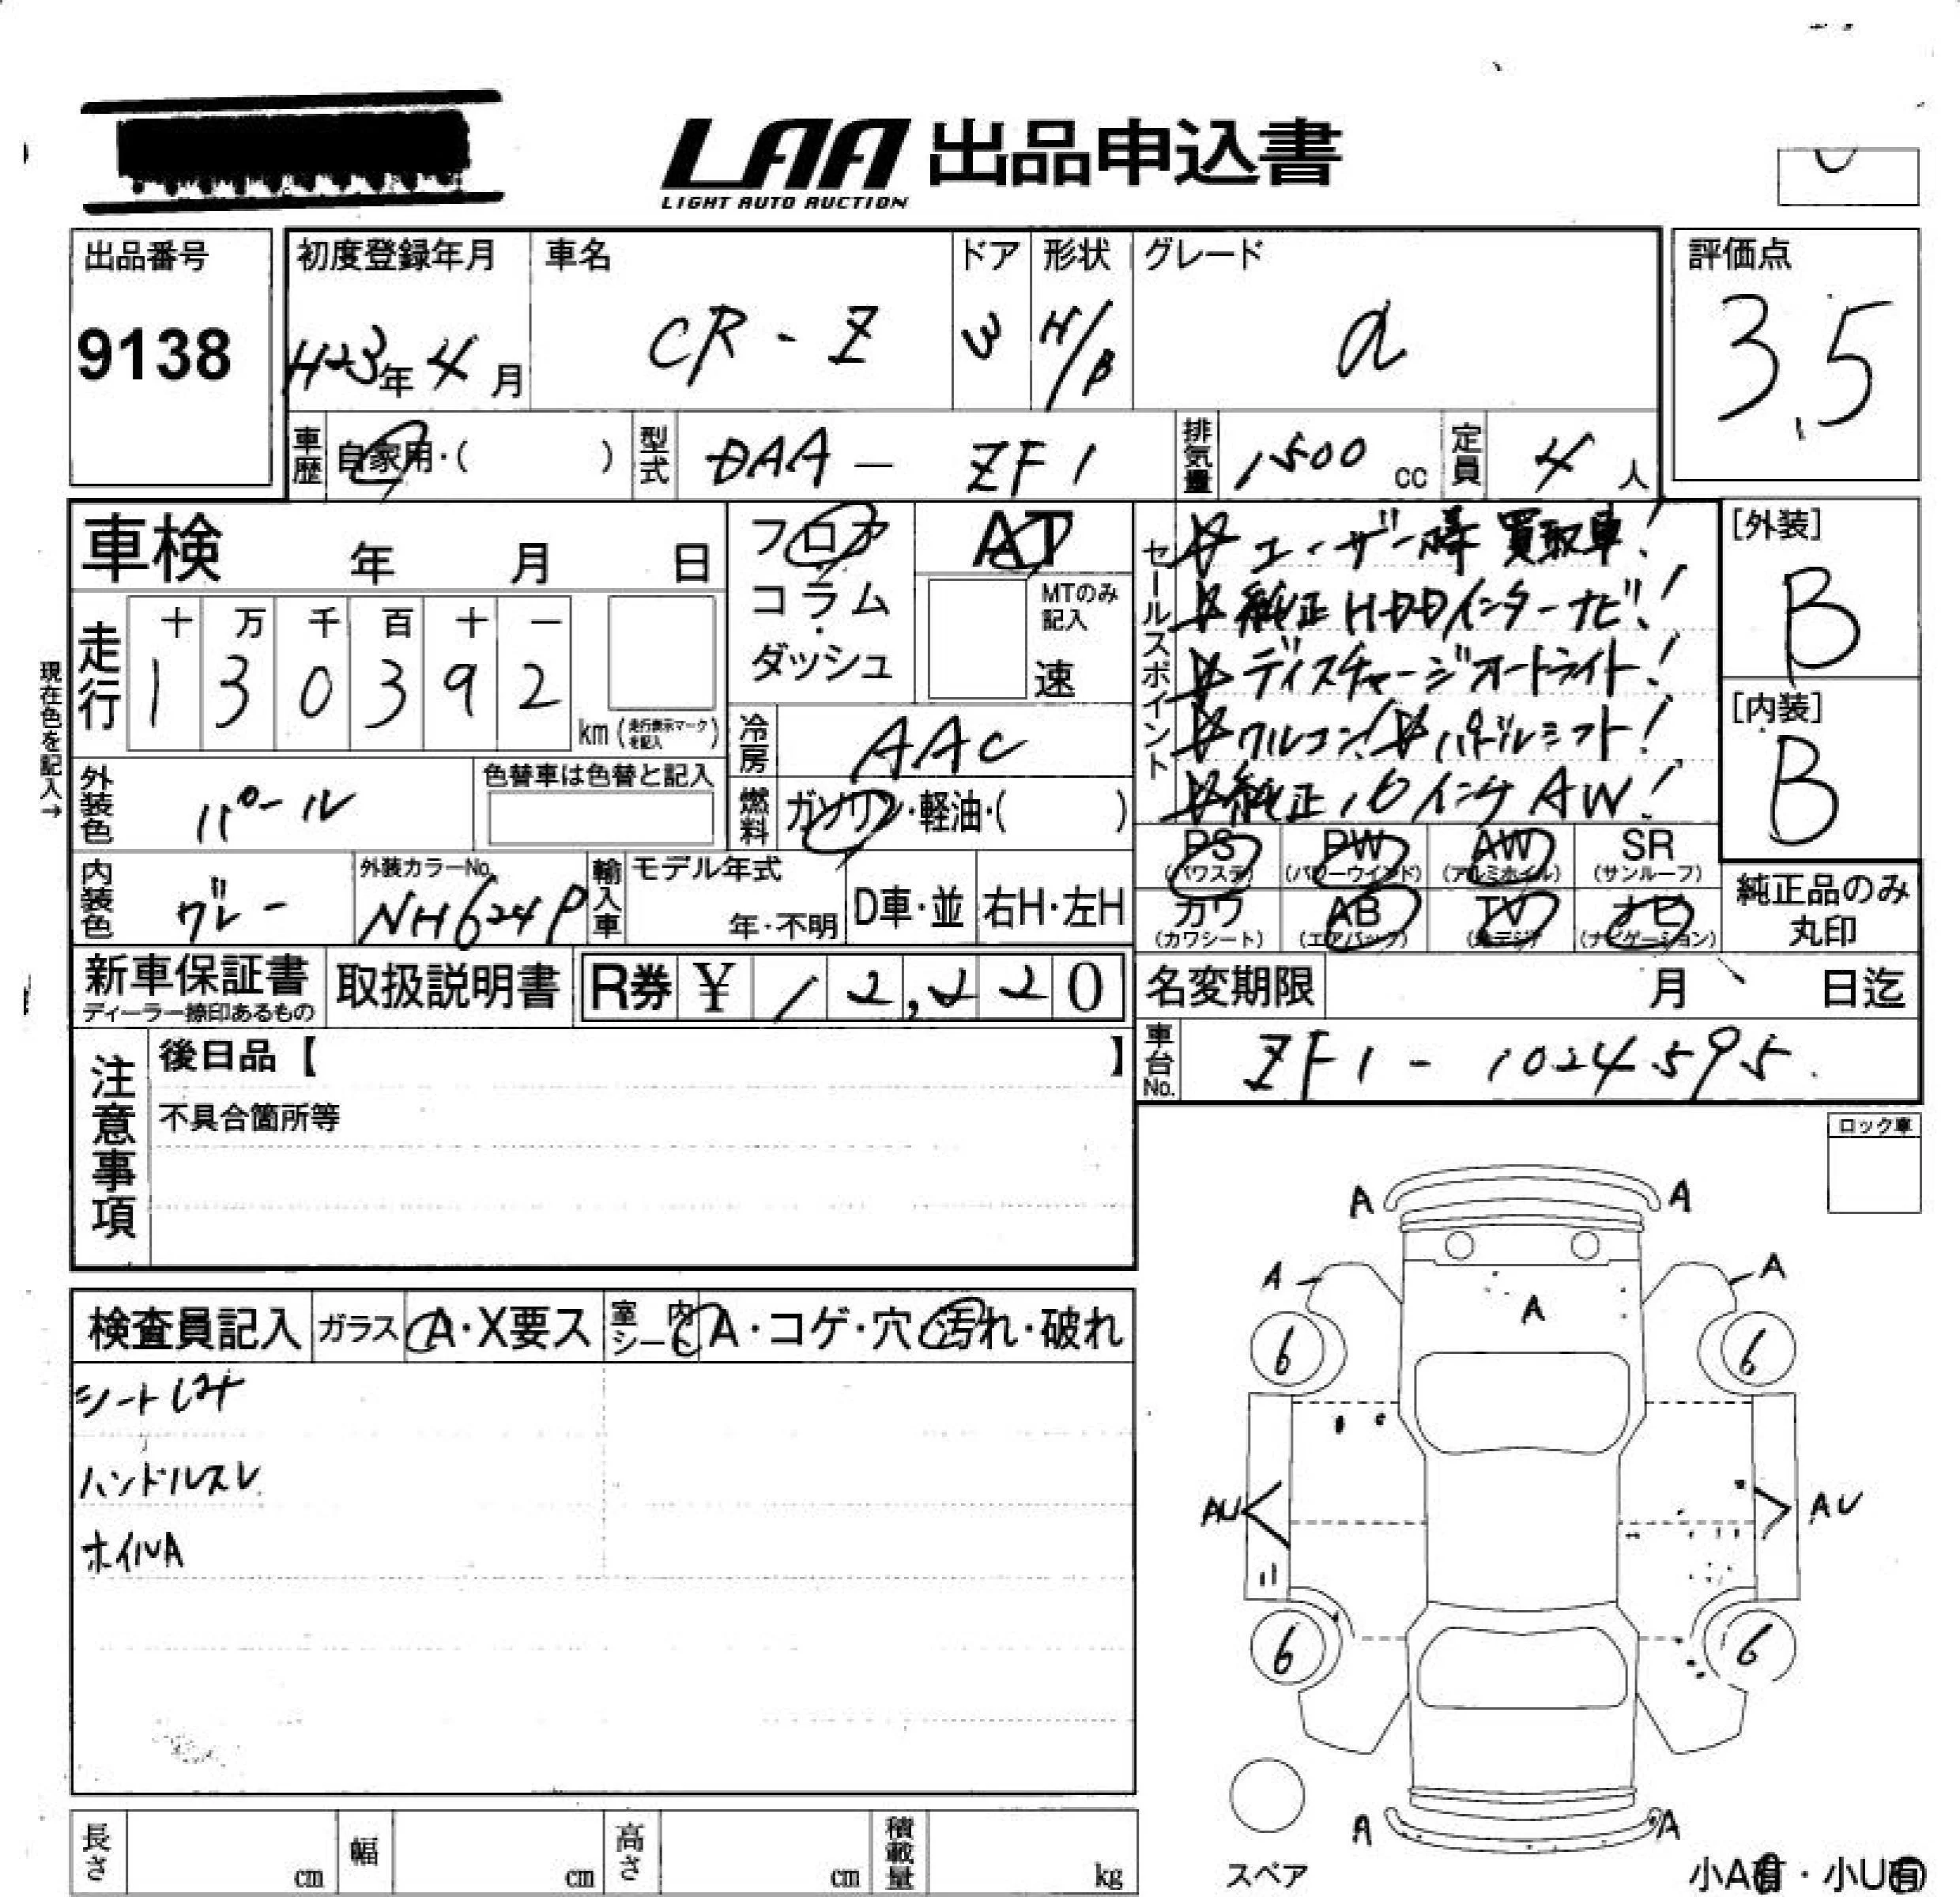 LAA 出品申込書
LIGHT AUTO AUCTION
出品番号
9138
初度登録年月
H23年 4月
車名
CR-Z
ドア
3
形状
H/B
グレード
α
評価点
3.5
車歴
自家用・( )
型式
DAA - ZF1
排気量
1500 cc
定員
4 人
車検 年 月 日
フロア
コラム
ダッシュ
AT
MTのみ記入
速
走行
十 万 千 百 十 一
1 3 0 3 9 2
km (走行表示マークを記入)
現在色を記入→
冷房
AAC
外装色
パール
色替車は色替と記入
燃料
ガソリン・軽油・( )
セールスポイント
☆ユーザー様買取車!
☆純正HDDインターナビ!
☆ディスチャージオートライト!
☆クルコン!☆パドルシフト!
☆純正16インチAW!
[外装]
B
[内装]
B
内装色
グレー
外装カラーNo.
NH624P
輸入車
モデル年式
年・不明
D車・並
右H・左H
PS
(パワステ)
PW
(パワーウインド)
AW
(アルミホイル)
SR
(サンルーフ)
カワ
(カワシート)
AB
(エアバック)
TV
(地デジ)
ナビ
(ナビゲーション)
純正品のみ
丸印
新車保証書
ディーラー捺印あるもの
取扱説明書
R券 ¥ 12,220
名変期限 月 日迄
車台No.
ZF1 - 1024595
注意事項
後日品【 】
不具合箇所等
ロック車
検査員記入
ガラス
A・X要ス
室内
シート
A・コゲ・穴・汚れ・破れ
ハンドルスレ
ホイルA
A A
A A
A
6 6
AU AU
6 6
A A
スペア
長さ cm
幅 cm
高さ cm
積載量 kg
小A有・小U有